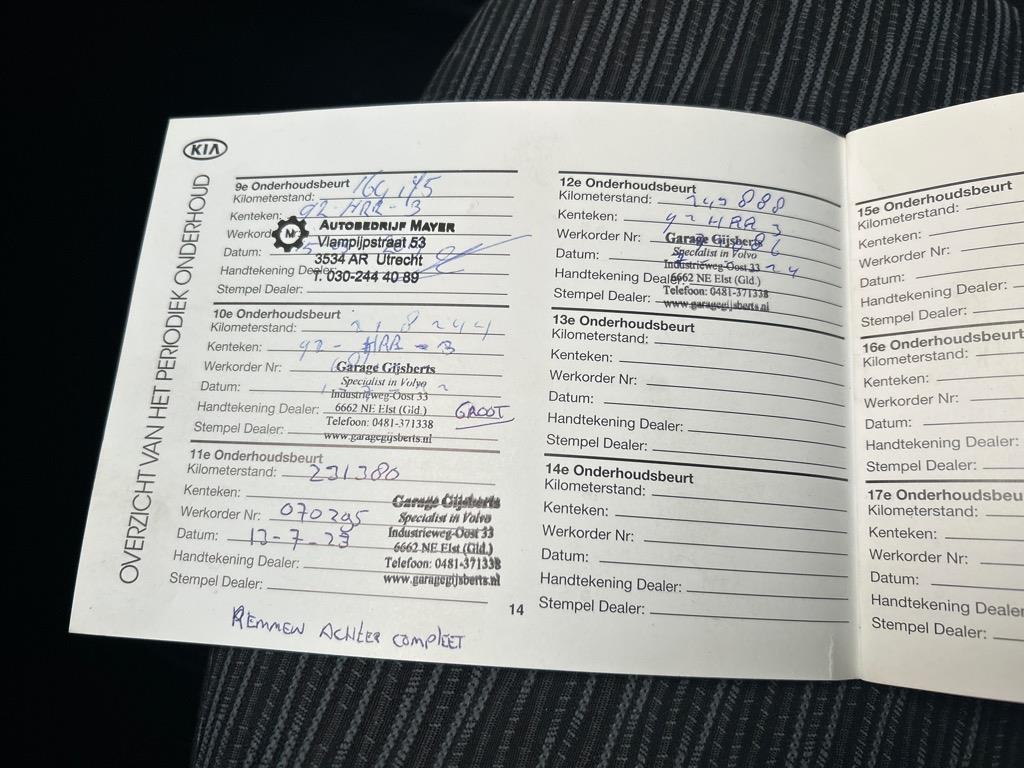 KIA
OVERZICHT VAN HET PERIODIEK ONDERHOUD
9e Onderhoudsbeurt
Kilometerstand:
Kenteken: 92-HRR-3
Werkorder
AUTOBEDRIJF MAYER
M
Vlampijpstraat 53
Datum:
3534 AR Utrecht
Handtekening Dealer:
T. 030-244 40 89
Stempel Dealer:
10e Onderhoudsbeurt
Kilometerstand: 218244
Kenteken: 92-HRR-3
Werkorder Nr:
Garage Gijsberts
Specialist in Volvo
Datum:
Industrieweg-Oost 33
Handtekening Dealer:
6662 NE Elst (Gld.)
GROOT
Telefoon: 0481-371338
Stempel Dealer:
www.garagegijsberts.nl
11e Onderhoudsbeurt
Kilometerstand: 231380
Kenteken:
Garage Gijsberts
Werkorder Nr: 070295
Specialist in Volvo
Datum: 13-7-23
Industrieweg-Oost 33
6662 NE Elst (Gld.)
Handtekening Dealer:
Telefoon: 0481-371338
Stempel Dealer:
www.garagegijsberts.nl
REMMEN ACHTER COMPLEET
14
12e Onderhoudsbeurt
Kilometerstand: 249888
Kenteken: 92 HRR 3
Werkorder Nr:
Garage Gijsberts
Specialist in Volvo
Datum:
Industrieweg-Oost 33
Handtekening Dealer:
6662 NE Elst (Gld.)
Telefoon: 0481-371338
Stempel Dealer:
www.garagegijsberts.nl
13e Onderhoudsbeurt
Kilometerstand:
Kenteken:
Werkorder Nr:
Datum:
Handtekening Dealer:
Stempel Dealer:
14e Onderhoudsbeurt
Kilometerstand:
Kenteken:
Werkorder Nr:
Datum:
Handtekening Dealer:
Stempel Dealer:
15e Onderhoudsbeurt
Kilometerstand:
Kenteken:
Werkorder Nr:
Datum:
Handtekening Dealer:
Stempel Dealer:
16e Onderhoudsbeurt
Kilometerstand:
Kenteken:
Werkorder Nr:
Datum:
Handtekening Dealer:
Stempel Dealer:
17e Onderhoudsbeu
Kilometerstand:
Kenteken:
Werkorder Nr:
Datum:
Handtekening Dealer
Stempel Dealer: